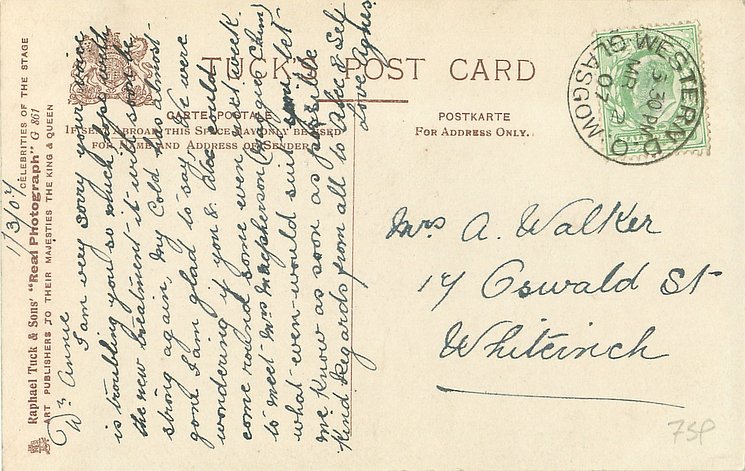 TUCK'S POST CARD
CARTE POSTALE
IF SENT ABROAD THIS SPACE MAY ONLY BE USED
FOR NAME AND ADDRESS OF SENDER
POSTKARTE
FOR ADDRESS ONLY.
WESTERN D.O. GLASGOW
5.30 PM
MR 2
07
Mrs A. Walker
17 Oswald St
Whiteinch
75p
Raphael Tuck & Sons' "Real Photograph" G 861
CELEBRITIES OF THE STAGE
ART PUBLISHERS TO THEIR MAJESTIES THE KING & QUEEN
1/3/07
Dr Annie
I am very sorry your voice
is troubling you so much, perhaps with
the new treatment it will soon be
strong again, my cold has almost
gone I am glad to say. We were
wondering if you & Alec could
come round some even. next week
to meet Mrs Macpherson (Maggie Chim)
what even. would suit, let
me know as soon as possible
Kind Regards from all to Alec & Self
Love Agnes.